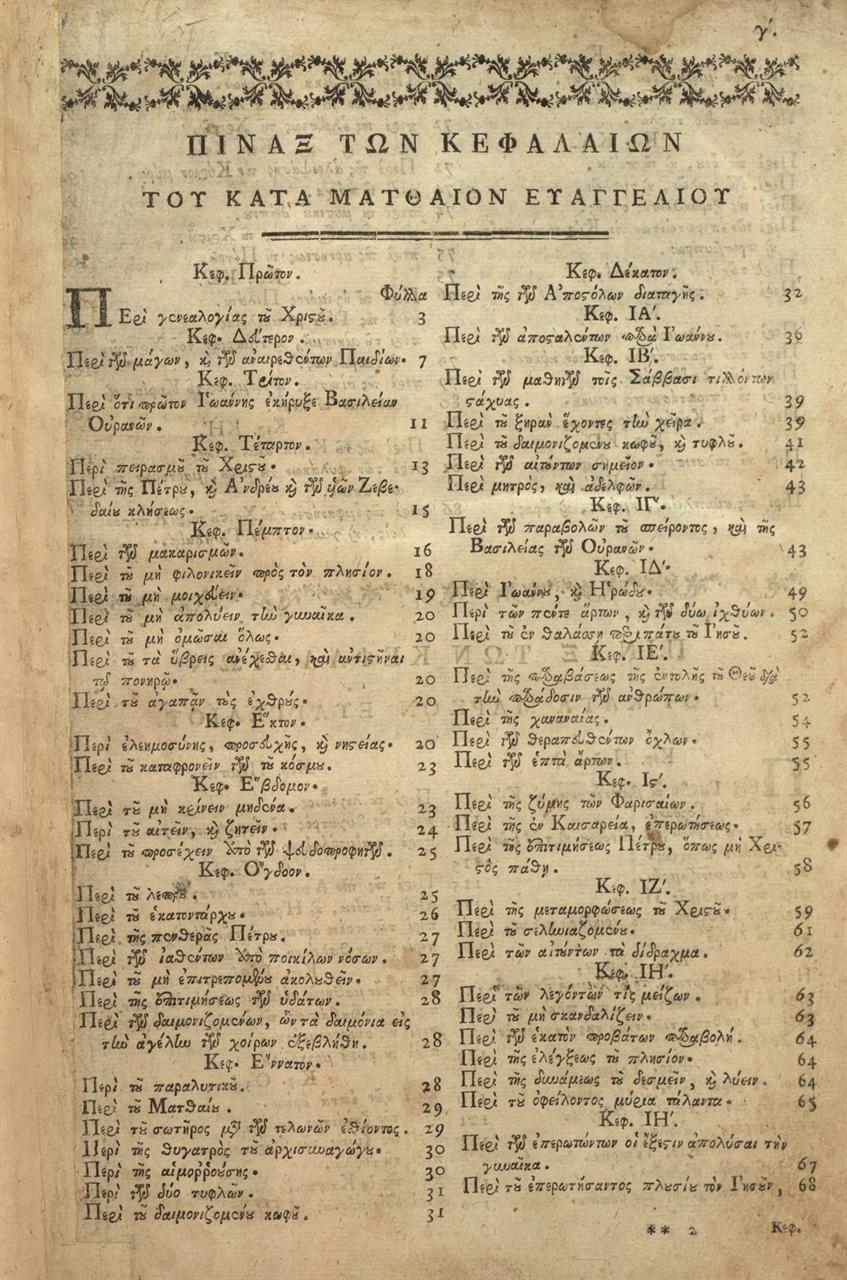 γ'.
ΠΙΝΑΞ ΤΩΝ ΚΕΦΑΛΑΙΩΝ
ΤΟΥ ΚΑΤΑ ΜΑΤΘΑΙΟΝ ΕΥΑΓΓΕΛΙΟΥ
Κεφ. Πρῶτον.
Φύλλα
ΠΕρὶ γενεαλογίας τοῦ Χριστοῦ. 3
Κεφ. Δεύτερον.
Περὶ τῶν μάγων, καὶ τῶν ἀναιρεθέντων Παιδίων. 7
Κεφ. Τρίτον.
Περὶ ὅτι πρῶτον Ἰωάννης ἐκήρυξε Βασιλείαν
Οὐρανῶν. 11
Κεφ. Τέταρτον.
Περὶ πειρασμοῦ τοῦ Χριστοῦ. 13
Περὶ τῆς Πέτρου, καὶ Ἀνδρέου καὶ τῶν υἱῶν Ζεβε-
δαίου κλήσεως. 15
Κεφ. Πέμπτον.
Περὶ τῶν μακαρισμῶν. 16
Περὶ τοῦ μὴ φιλονικεῖν πρὸς τὸν πλησίον. 18
Περὶ τοῦ μὴ μοιχεύειν. 19
Περὶ τοῦ μὴ ἀπολύειν τὴν γυναῖκα. 20
Περὶ τοῦ μὴ ὀμῶσαι ὅλως. 20
Περὶ τοῦ τὰ ὕβρεις ἀνέχεσθαι, καὶ ἀντιστῆναι
τῷ πονηρῷ. 20
Περὶ τοῦ ἀγαπᾷν τοὺς ἐχθρούς. 20
Κεφ. Ἕκτον.
Περὶ ἐλεημοσύνης, προσευχῆς, καὶ νηστείας. 20
Περὶ τοῦ καταφρονεῖν τῶν τοῦ κόσμου. 23
Κεφ. Ἕβδομον.
Περὶ τοῦ μὴ κρίνειν μηδένα. 23
Περὶ τοῦ αἰτεῖν, καὶ ζητεῖν. 24
Περὶ τοῦ προσέχειν ὑπὸ τῶν ψευδοπροφητῶν. 25
Κεφ. Ὄγδοον.
Περὶ τοῦ λεπροῦ. 25
Περὶ τοῦ ἑκατοντάρχου. 26
Περὶ τῆς πενθερᾶς Πέτρου. 27
Περὶ τῶν ἰαθέντων ὑπὸ ποικίλων νόσων. 27
Περὶ τοῦ μὴ ἐπιτρεπομένου ἀκολουθεῖν. 27
Περὶ τῆς ἐπιτιμήσεως τῶν ὑδάτων. 28
Περὶ τῶν δαιμονιζομένων, ὧν τὰ δαιμόνια εἰς
τὴν ἀγέλην τῶν χοίρων ἐξεβλήθη. 28
Κεφ. Ἔννατον.
Περὶ τοῦ παραλυτικοῦ. 28
Περὶ τοῦ Ματθαίου. 29
Περὶ τοῦ σωτῆρος μετὰ τῶν τελωνῶν ἐσθίοντος. 29
Περὶ τῆς θυγατρὸς τοῦ ἀρχισυναγώγου. 30
Περὶ τῆς αἱμοῤῥούσης. 30
Περὶ τῶν δύο τυφλῶν. 31
Περὶ τοῦ δαιμονιζομένου κωφοῦ. 31
Κεφ. Δέκατον.
Περὶ τῆς τῶν Ἀποστόλων διαταγῆς. 32
Κεφ. ΙΑ'.
Περὶ τῶν ἀποσταλέντων παρὰ Ἰωάννου. 36
Κεφ. ΙΒ'.
Περὶ τῶν μαθητῶν τοῖς Σάββασι τιλλόντων
στάχυας. 39
Περὶ τοῦ ξηρὰν ἔχοντες τὴν χεῖρα. 39
Περὶ τοῦ δαιμονιζομένου κωφοῦ, καὶ τυφλοῦ. 41
Περὶ τῶν αἰτούντων σημεῖον. 42
Περὶ μητρὸς, καὶ ἀδελφῶν. 43
Κεφ. ΙΓ'.
Περὶ τῶν παραβολῶν τοῦ σπείροντος, καὶ τῆς
Βασιλείας τῶν Οὐρανῶν. 43
Κεφ. ΙΔ'.
Περὶ Ἰωάννου, καὶ Ἡρώδου. 49
Περὶ τῶν πέντε ἄρτων, καὶ τῶν δύω ἰχθύων. 50
Περὶ τοῦ ἐν θαλάσσῃ περιπάτου τοῦ Ἰησοῦ. 52
Κεφ. ΙΕ'.
Περὶ τῆς παραβάσεως τῆς ἐντολῆς τοῦ Θεοῦ διὰ
τὴν παράδοσιν τῶν ἀνθρώπων. 52
Περὶ τῆς χαναναίας. 54
Περὶ τῶν θεραπευθέντων ὄχλων. 55
Περὶ τῶν ἑπτὰ ἄρτων. 55
Κεφ. Ιϛ'.
Περὶ τῆς ζύμης τῶν Φαρισαίων. 56
Περὶ τῆς ἐν Καισαρεία, ἐπερωτήσεως. 57
Περὶ τῆς ἐπιτιμήσεως Πέτρου, ὅπως μὴ Χρι-
στὸς πάθῃ. 58
Κεφ. ΙΖ'.
Περὶ τῆς μεταμορφώσεως τοῦ Χριστοῦ. 59
Περὶ τοῦ σεληνιαζομένου. 61
Περὶ τῶν αἰτούντων τὰ δίδραχμα. 62
Κεφ. ΙΗ'.
Περὶ τῶν λεγόντων τίς μείζων. 63
Περὶ τοῦ μὴ σκανδαλίζειν. 63
Περὶ τῶν ἑκατὸν προβάτων παραβολή. 64
Περὶ τῆς ἐλέγξεως τοῦ πλησίον. 64
Περὶ τῆς δυνάμεως τοῦ δεσμεῖν, καὶ λύειν. 64
Περὶ τοῦ ὀφείλοντος μύρια τάλαντα. 65
Κεφ. ΙΗ'.
Περὶ τῶν ἐπερωτώντων οἱ ἔξεστιν ἀπολύσαι τὴν
γυναῖκα. 67
Περὶ τοῦ ἐπερωτήσαντος πλουσίου τὸν Ἰησοῦν, 68
** 2 Κεφ.